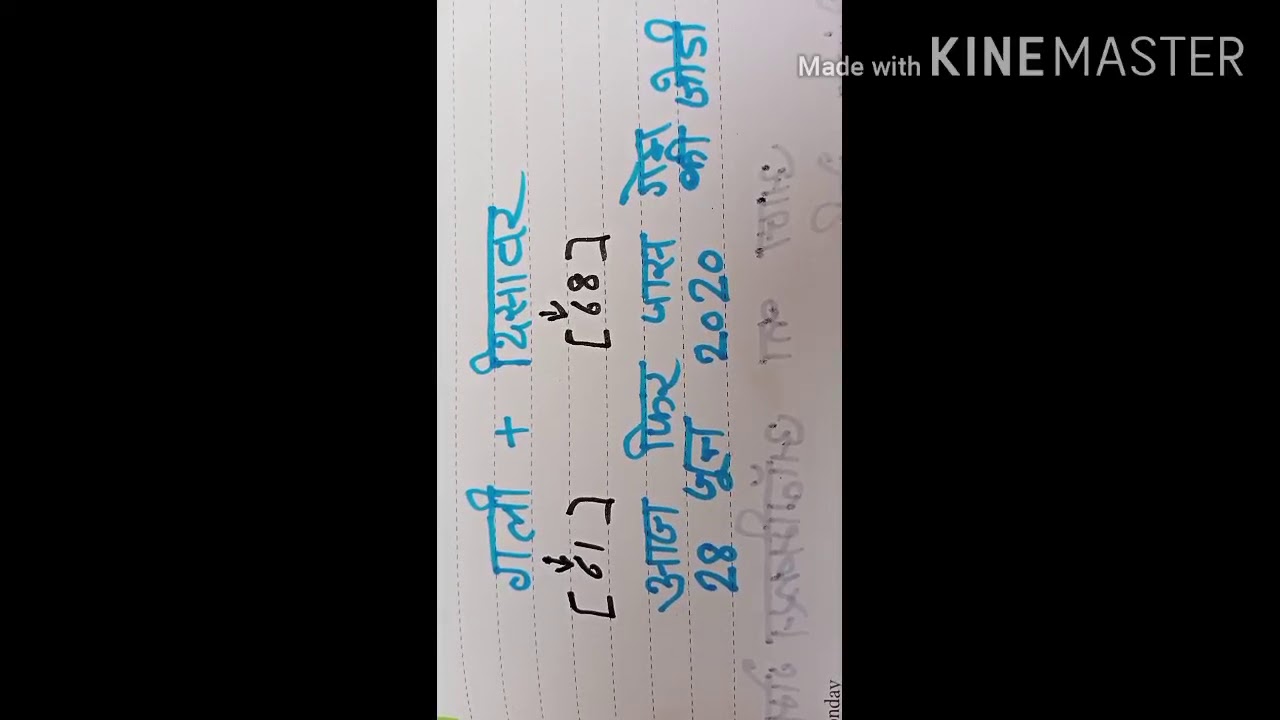 Made with KINEMASTER
गली + दिसावर
[61] [68]
आज फिर पास गेम
की जोडी
28 जून 2020
onday